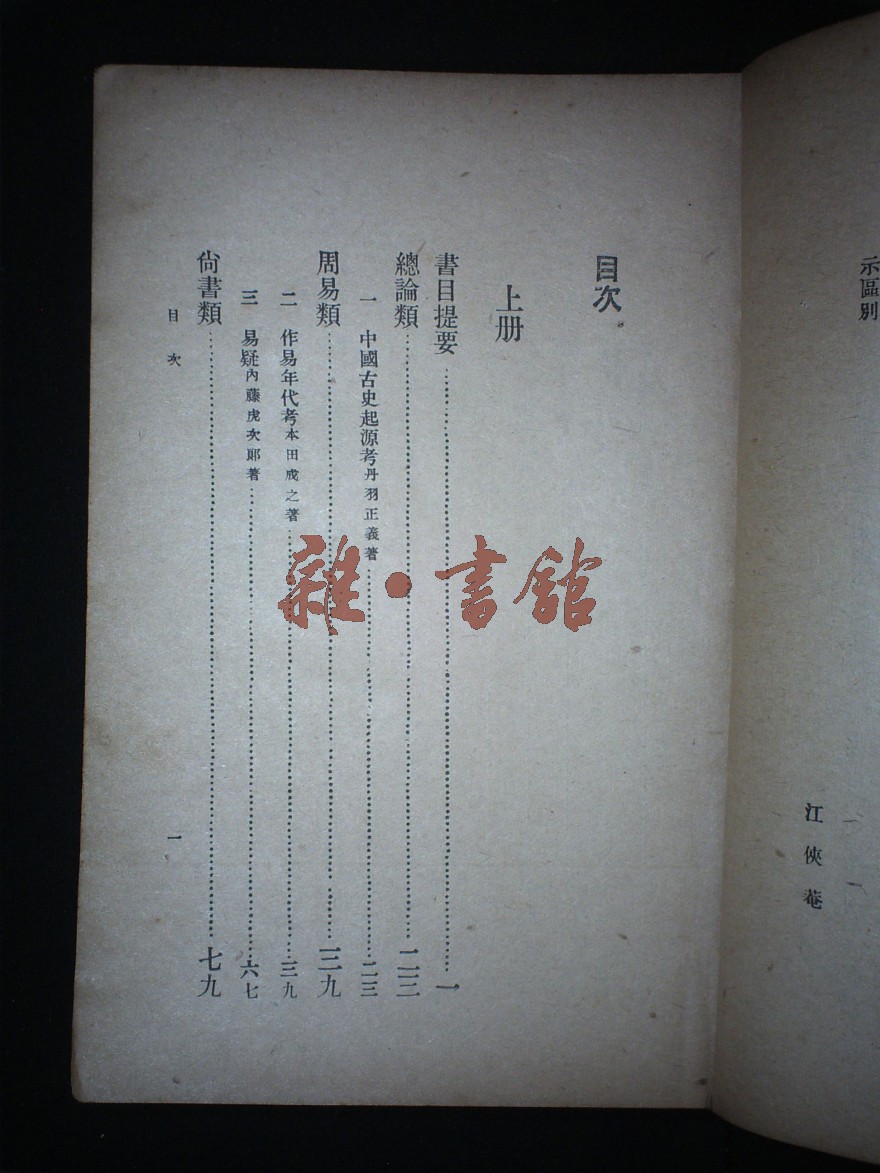 示區別
江俠菴
目次
上册
書目提要……一
總論類……二三
一 中國古史起源考丹羽正義著……二三
周易類……三九
二 作易年代考本田成之著……三九
三 易疑內藤虎次郎著……六七
尙書類……七九
目次 一
雜·書館